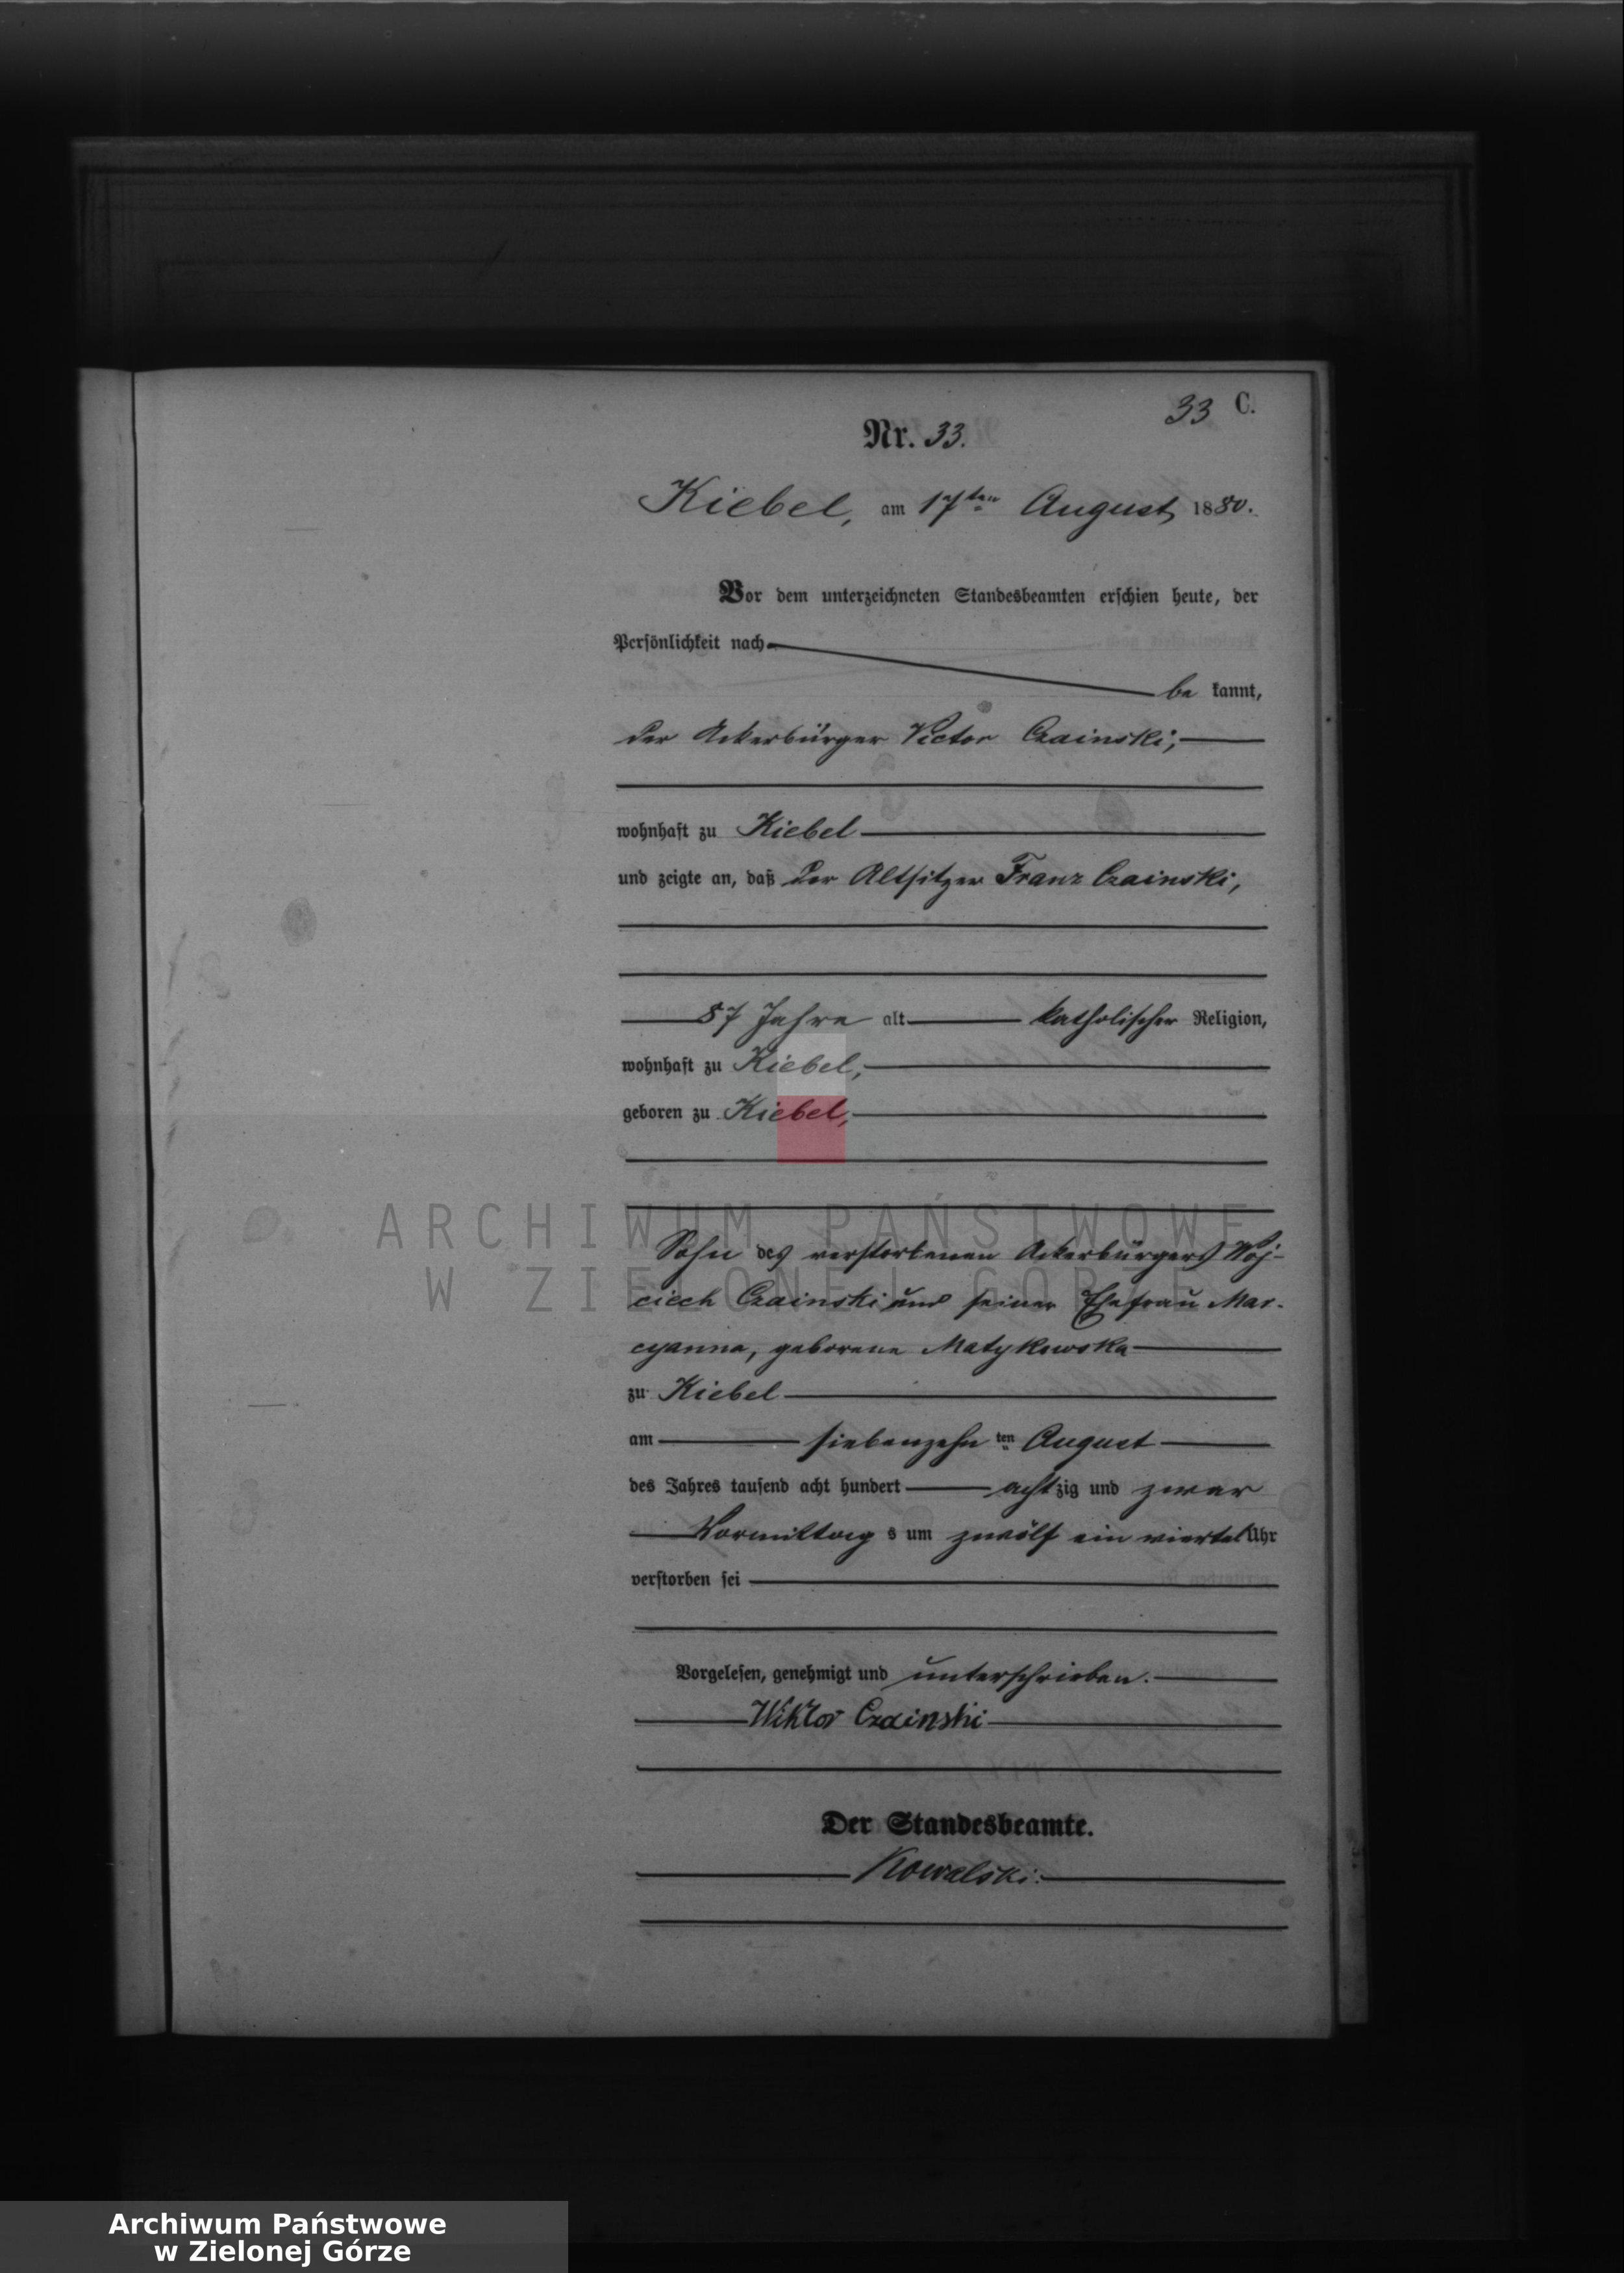 33 C.
Nr. 33.
Kiebel, am 17ten August 1880.
Vor dem unterzeichneten Standesbeamten erschien heute, der
Persönlichkeit nach
be kannt,
der Ackerbürger Victor Czainski,
wohnhaft zu Kiebel
und zeigte an, daß der Altsitzer Franz Czainski,
87 Jahre alt katholischer Religion,
wohnhaft zu Kiebel,
geboren zu Kiebel,
Sohn des verstorbenen Ackerbürgers Woj-
ciech Czainski und seiner Ehefrau Mar-
cyanna, geborene Matykowska
zu Kiebel
am siebenzehn ten August
des Jahres tausend acht hundert achtzig und zwar
Vormittag s um zwölf ein viertel Uhr
verstorben sei
Vorgelesen, genehmigt und unterschrieben.
Wiktor Czainski
Der Standesbeamte.
Kowalski.
ARCHIWUM PAŃSTWOWE
W ZIELONEJ GÓRZE
Archiwum Państwowe
w Zielonej Górze